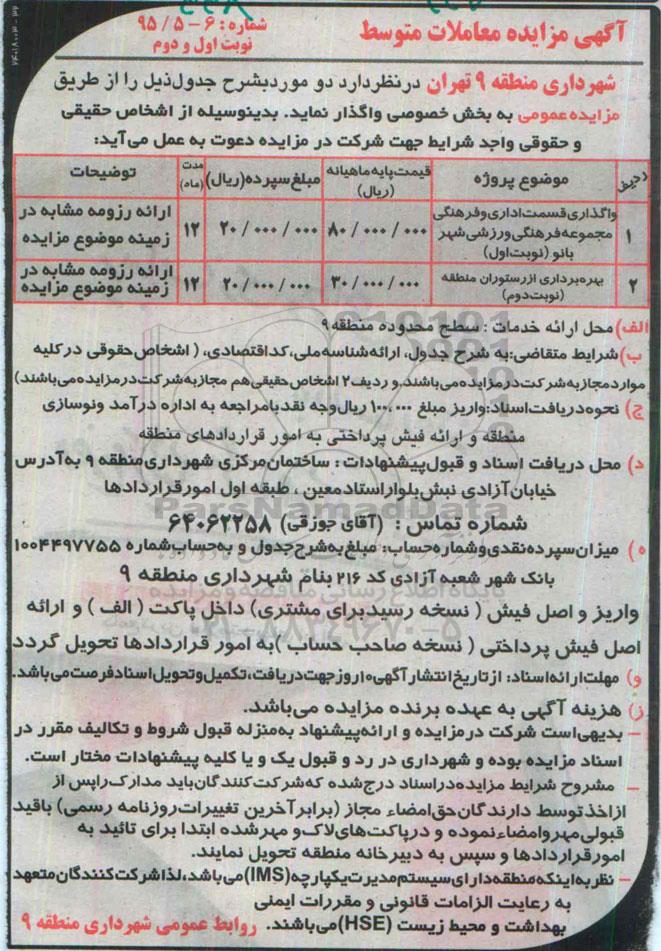 آگهی مزایده معاملات متوسط
شماره : ۶ - ۵ / ۹۵
نوبت اول و دوم
شهرداری منطقه ۹ تهران در نظر دارد دو مورد بشرح جدول ذیل را از طریق
مزایده عمومی به بخش خصوصی واگذار نماید. بدینوسیله از اشخاص حقیقی
و حقوقی واجد شرایط جهت شرکت در مزایده دعوت به عمل می آید:
ردیف موضوع پروژه قیمت پایه ماهیانه (ریال) مبلغ سپرده (ریال) مدت (ماه) توضیحات
۱ واگذاری قسمت اداری و فرهنگی مجموعه فرهنگی ورزشی شهر بانو (نوبت اول) ۸۰/۰۰۰/۰۰۰ ۲۰/۰۰۰/۰۰۰ ۱۲ ارائه رزومه مشابه در زمینه موضوع مزایده
۲ بهره برداری از رستوران منطقه (نوبت دوم) ۳۰/۰۰۰/۰۰۰ ۲۰/۰۰۰/۰۰۰ ۱۲ ارائه رزومه مشابه در زمینه موضوع مزایده
الف) محل ارائه خدمات : سطح محدوده منطقه ۹
ب) شرایط متقاضی: به شرح جدول، ارائه شناسه ملی، کد اقتصادی، ( اشخاص حقوقی در کلیه
موارد مجاز به شرکت در مزایده می باشند. و ردیف ۲ اشخاص حقیقی هم مجاز به شرکت در مزایده می باشند)
ج) نحوه دریافت اسناد: واریز مبلغ ۱۰۰،۰۰۰ ریال وجه نقد با مراجعه به اداره درآمد و نوسازی
منطقه و ارائه فیش پرداختی به امور قراردادهای منطقه
د) محل دریافت اسناد و قبول پیشنهادات : ساختمان مرکزی شهرداری منطقه ۹ به آدرس
خیابان آزادی نبش بلوار استاد معین ، طبقه اول امور قراردادها
شماره تماس : (آقای جوزقی) ۶۴۰۶۲۲۵۸
ه) میزان سپرده نقدی و شماره حساب: مبلغ به شرح جدول و به حساب شماره ۱۰۰۴۴۹۷۷۵۵
بانک شهر شعبه آزادی کد ۲۱۶ بنام شهرداری منطقه ۹
واریز و اصل فیش ( نسخه رسید برای مشتری) داخل پاکت ( الف ) و ارائه
اصل فیش پرداختی ( نسخه صاحب حساب )به امور قراردادها تحویل گردد.
و) مهلت ارائه اسناد: از تاریخ انتشار آگهی ۱۰ روز جهت دریافت، تکمیل و تحویل اسناد فرصت می باشد.
ز) هزینه آگهی به عهده برنده مزایده می باشد.
– بدیهی است شرکت در مزایده و ارائه پیشنهاد به منزله قبول شروط و تکالیف مقرر در
اسناد مزایده بوده و شهرداری در رد و قبول یک و یا کلیه پیشنهادات مختار است.
– مشروح شرایط مزایده در اسناد درج شده که شرکت کنندگان باید مدارک را پس از
از اخذ توسط دارندگان حق امضاء مجاز (برابر آخرین تغییرات روزنامه رسمی) با قید
قبولی مهر و امضاء نموده و در پاکت های لاک و مهر شده ابتدا برای تائید به
امور قراردادها و سپس به دبیرخانه منطقه تحویل نمایند.
– نظر به اینکه منطقه دارای سیستم مدیریت یکپارچه (IMS) می باشد، لذا شرکت کنندگان متعهد
به رعایت الزامات قانونی و مقررات ایمنی
بهداشت و محیط زیست (HSE) می باشند.
روابط عمومی شهرداری منطقه ۹
ParsNamadData
پایگاه اطلاع رسانی مناقصه و مزایده
۰۲۱-۸۸۳۴۹۶۷۰-۵